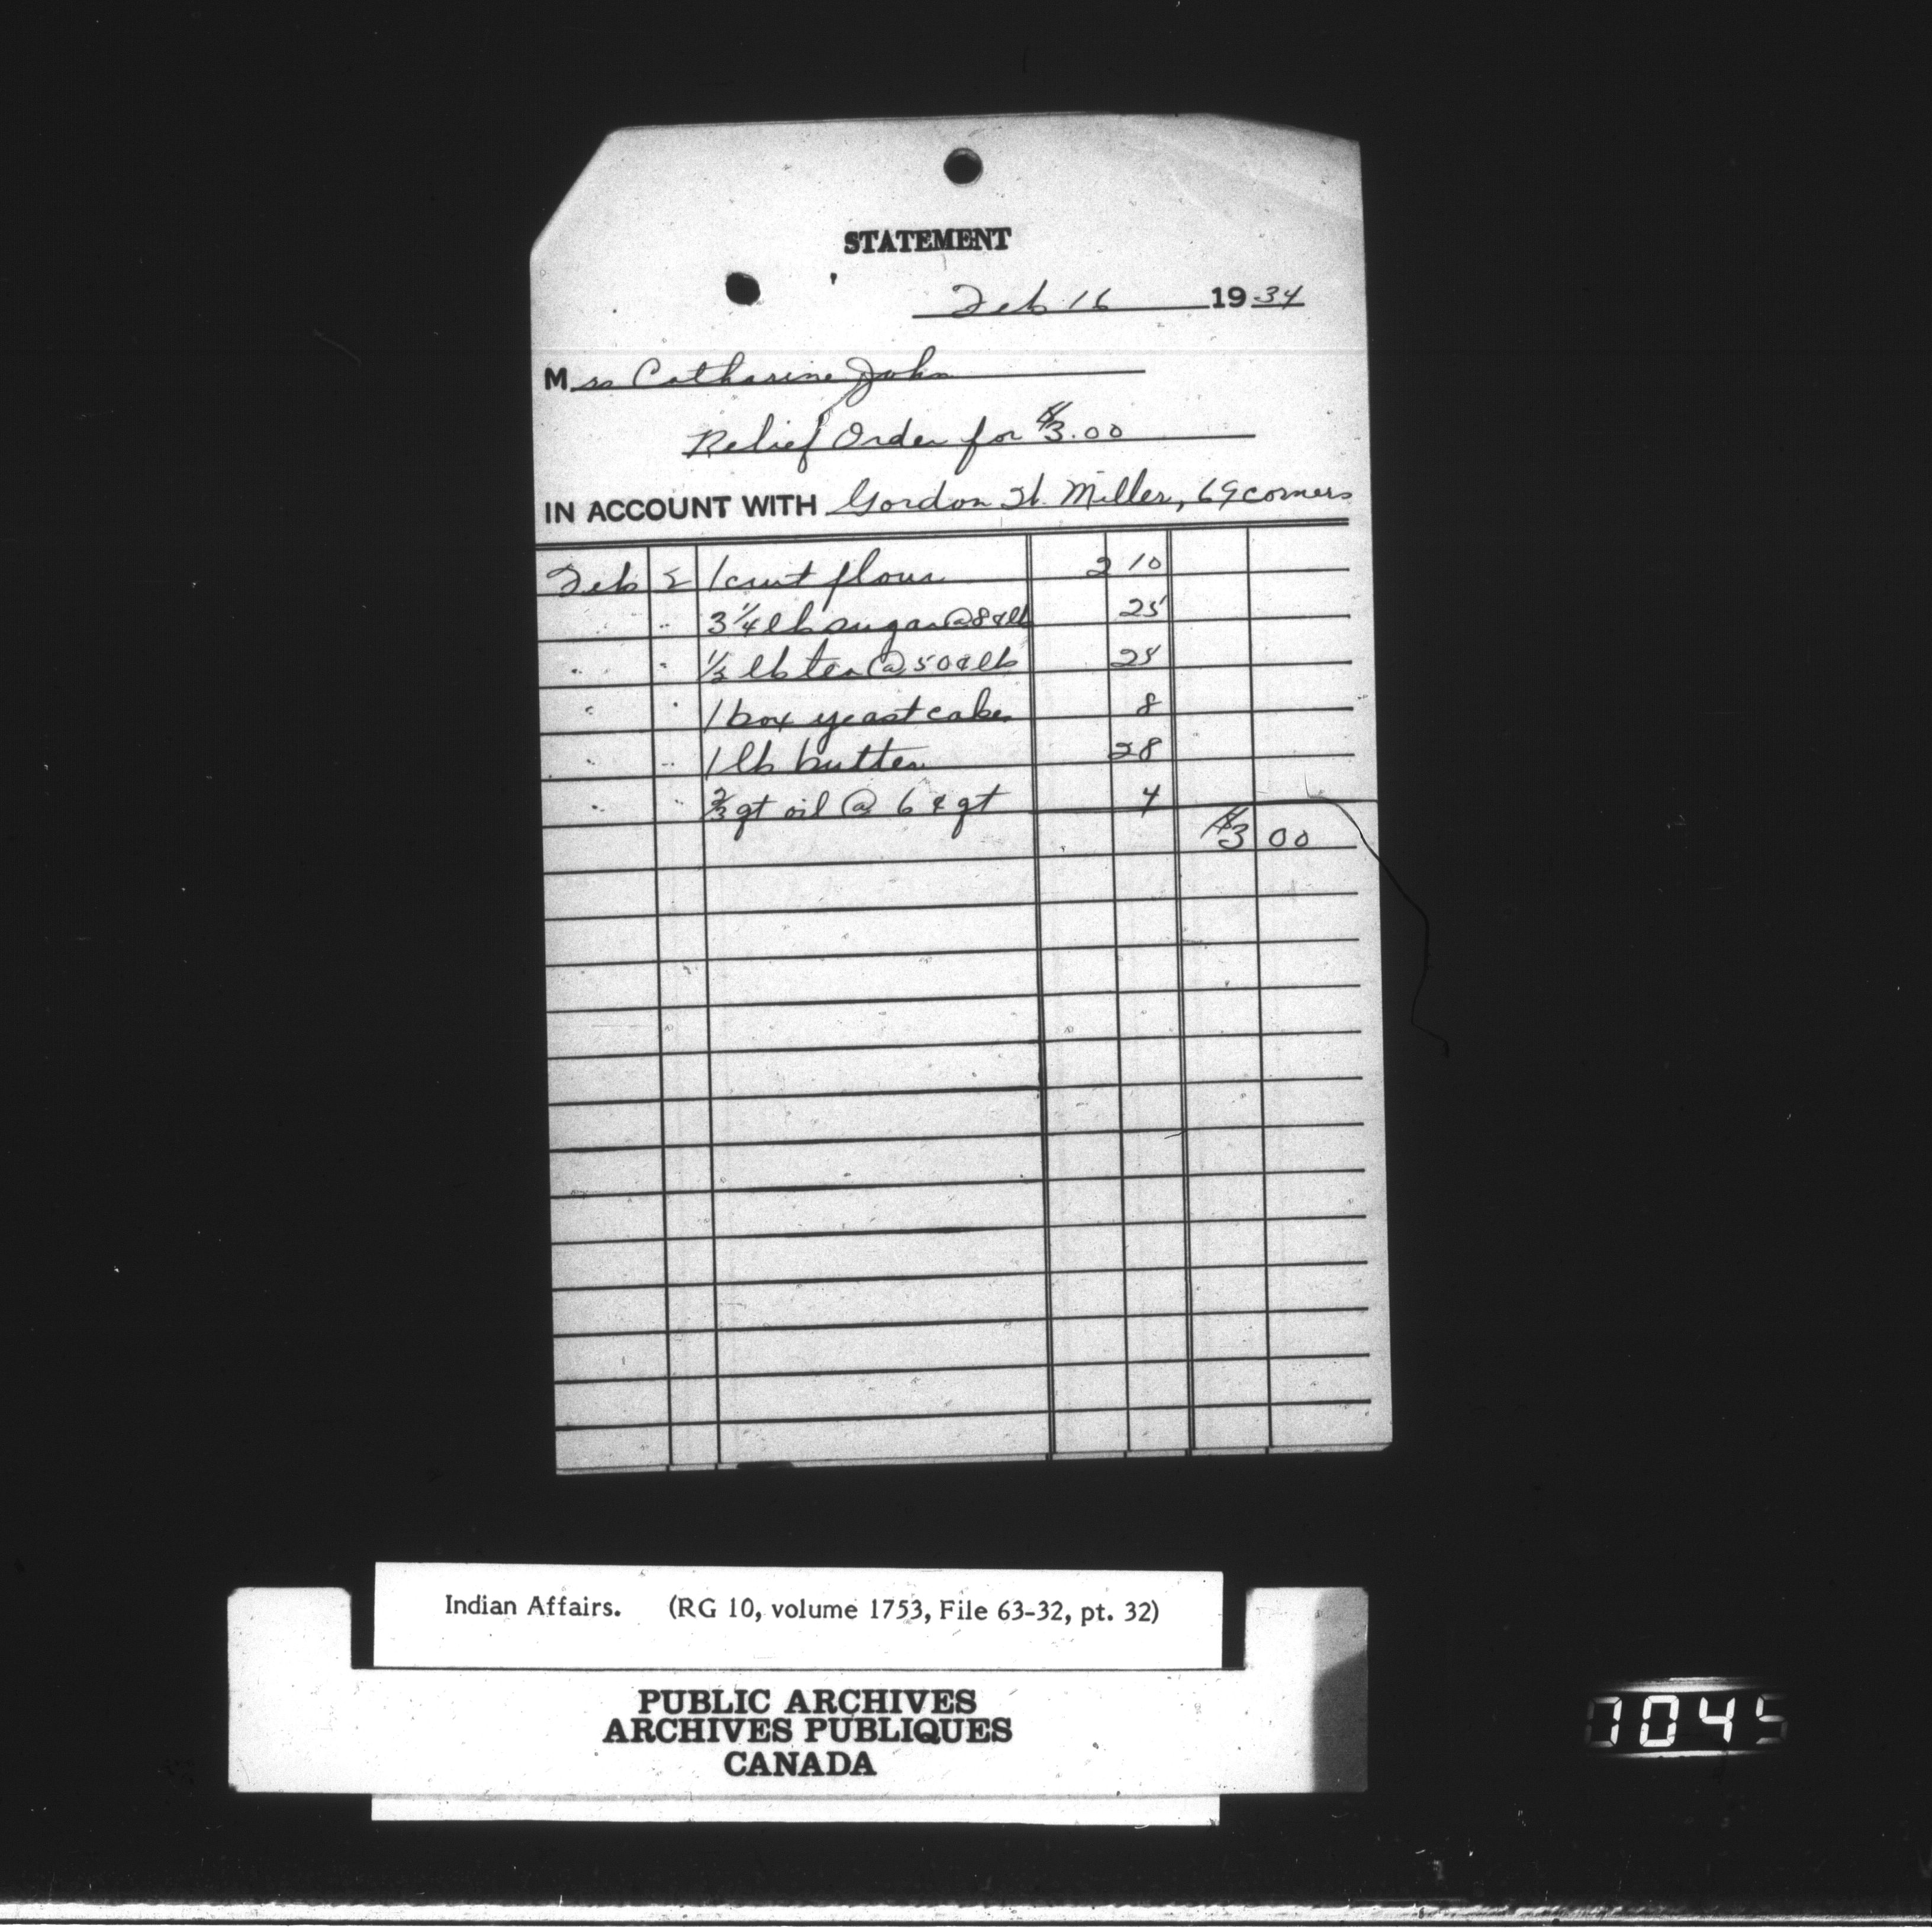 STATEMENT
Feb 16 1934
Mrs Catharine John
Relief Order for $3.00
IN ACCOUNT WITH Gordon H. Miller, 69 corners
Feb 1 cwt flour 2 10
" " 3 1/4 lb sugar @ 8¢ lb 25
" " 1/2 lb tea @ 50¢ lb 25
" " 1 box yeast cakes 8
" " 1 lb butter 28
" " 2/3 qt oil @ 6¢ qt 4
$3 00
Indian Affairs. (RG 10, volume 1753, File 63-32, pt. 32)
PUBLIC ARCHIVES
ARCHIVES PUBLIQUES
CANADA
1045